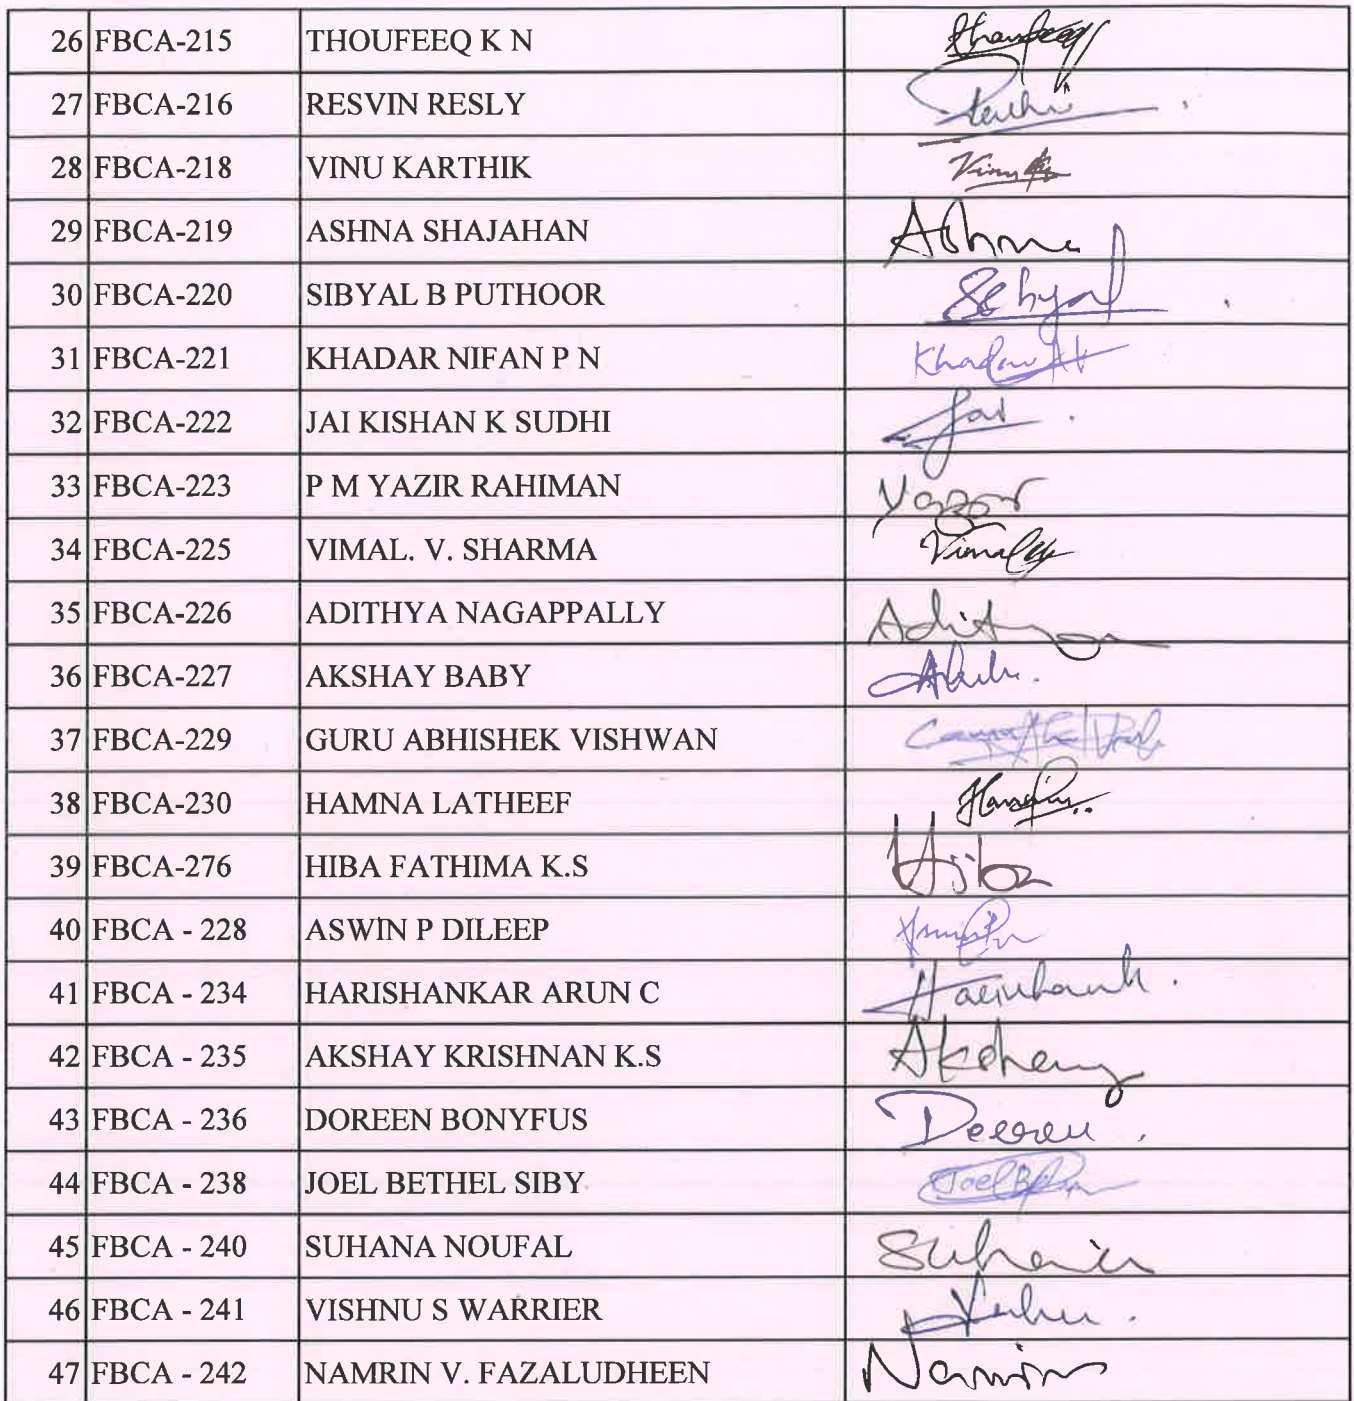 26 FBCA-215 THOUFEEQ K N Thoufeeq
27 FBCA-216 RESVIN RESLY
28 FBCA-218 VINU KARTHIK Vinu
29 FBCA-219 ASHNA SHAJAHAN Ashna
30 FBCA-220 SIBYAL B PUTHOOR Sibyal
31 FBCA-221 KHADAR NIFAN P N Khadar
32 FBCA-222 JAI KISHAN K SUDHI Jai
33 FBCA-223 P M YAZIR RAHIMAN Yazir
34 FBCA-225 VIMAL. V. SHARMA Vimal
35 FBCA-226 ADITHYA NAGAPPALLY Aditya
36 FBCA-227 AKSHAY BABY
37 FBCA-229 GURU ABHISHEK VISHWAN
38 FBCA-230 HAMNA LATHEEF
39 FBCA-276 HIBA FATHIMA K.S Hiba
40 FBCA - 228 ASWIN P DILEEP
41 FBCA - 234 HARISHANKAR ARUN C
42 FBCA - 235 AKSHAY KRISHNAN K.S Akshay
43 FBCA - 236 DOREEN BONYFUS Doreen
44 FBCA - 238 JOEL BETHEL SIBY Joel
45 FBCA - 240 SUHANA NOUFAL Suhana
46 FBCA - 241 VISHNU S WARRIER
47 FBCA - 242 NAMRIN V. FAZALUDHEEN Namrin